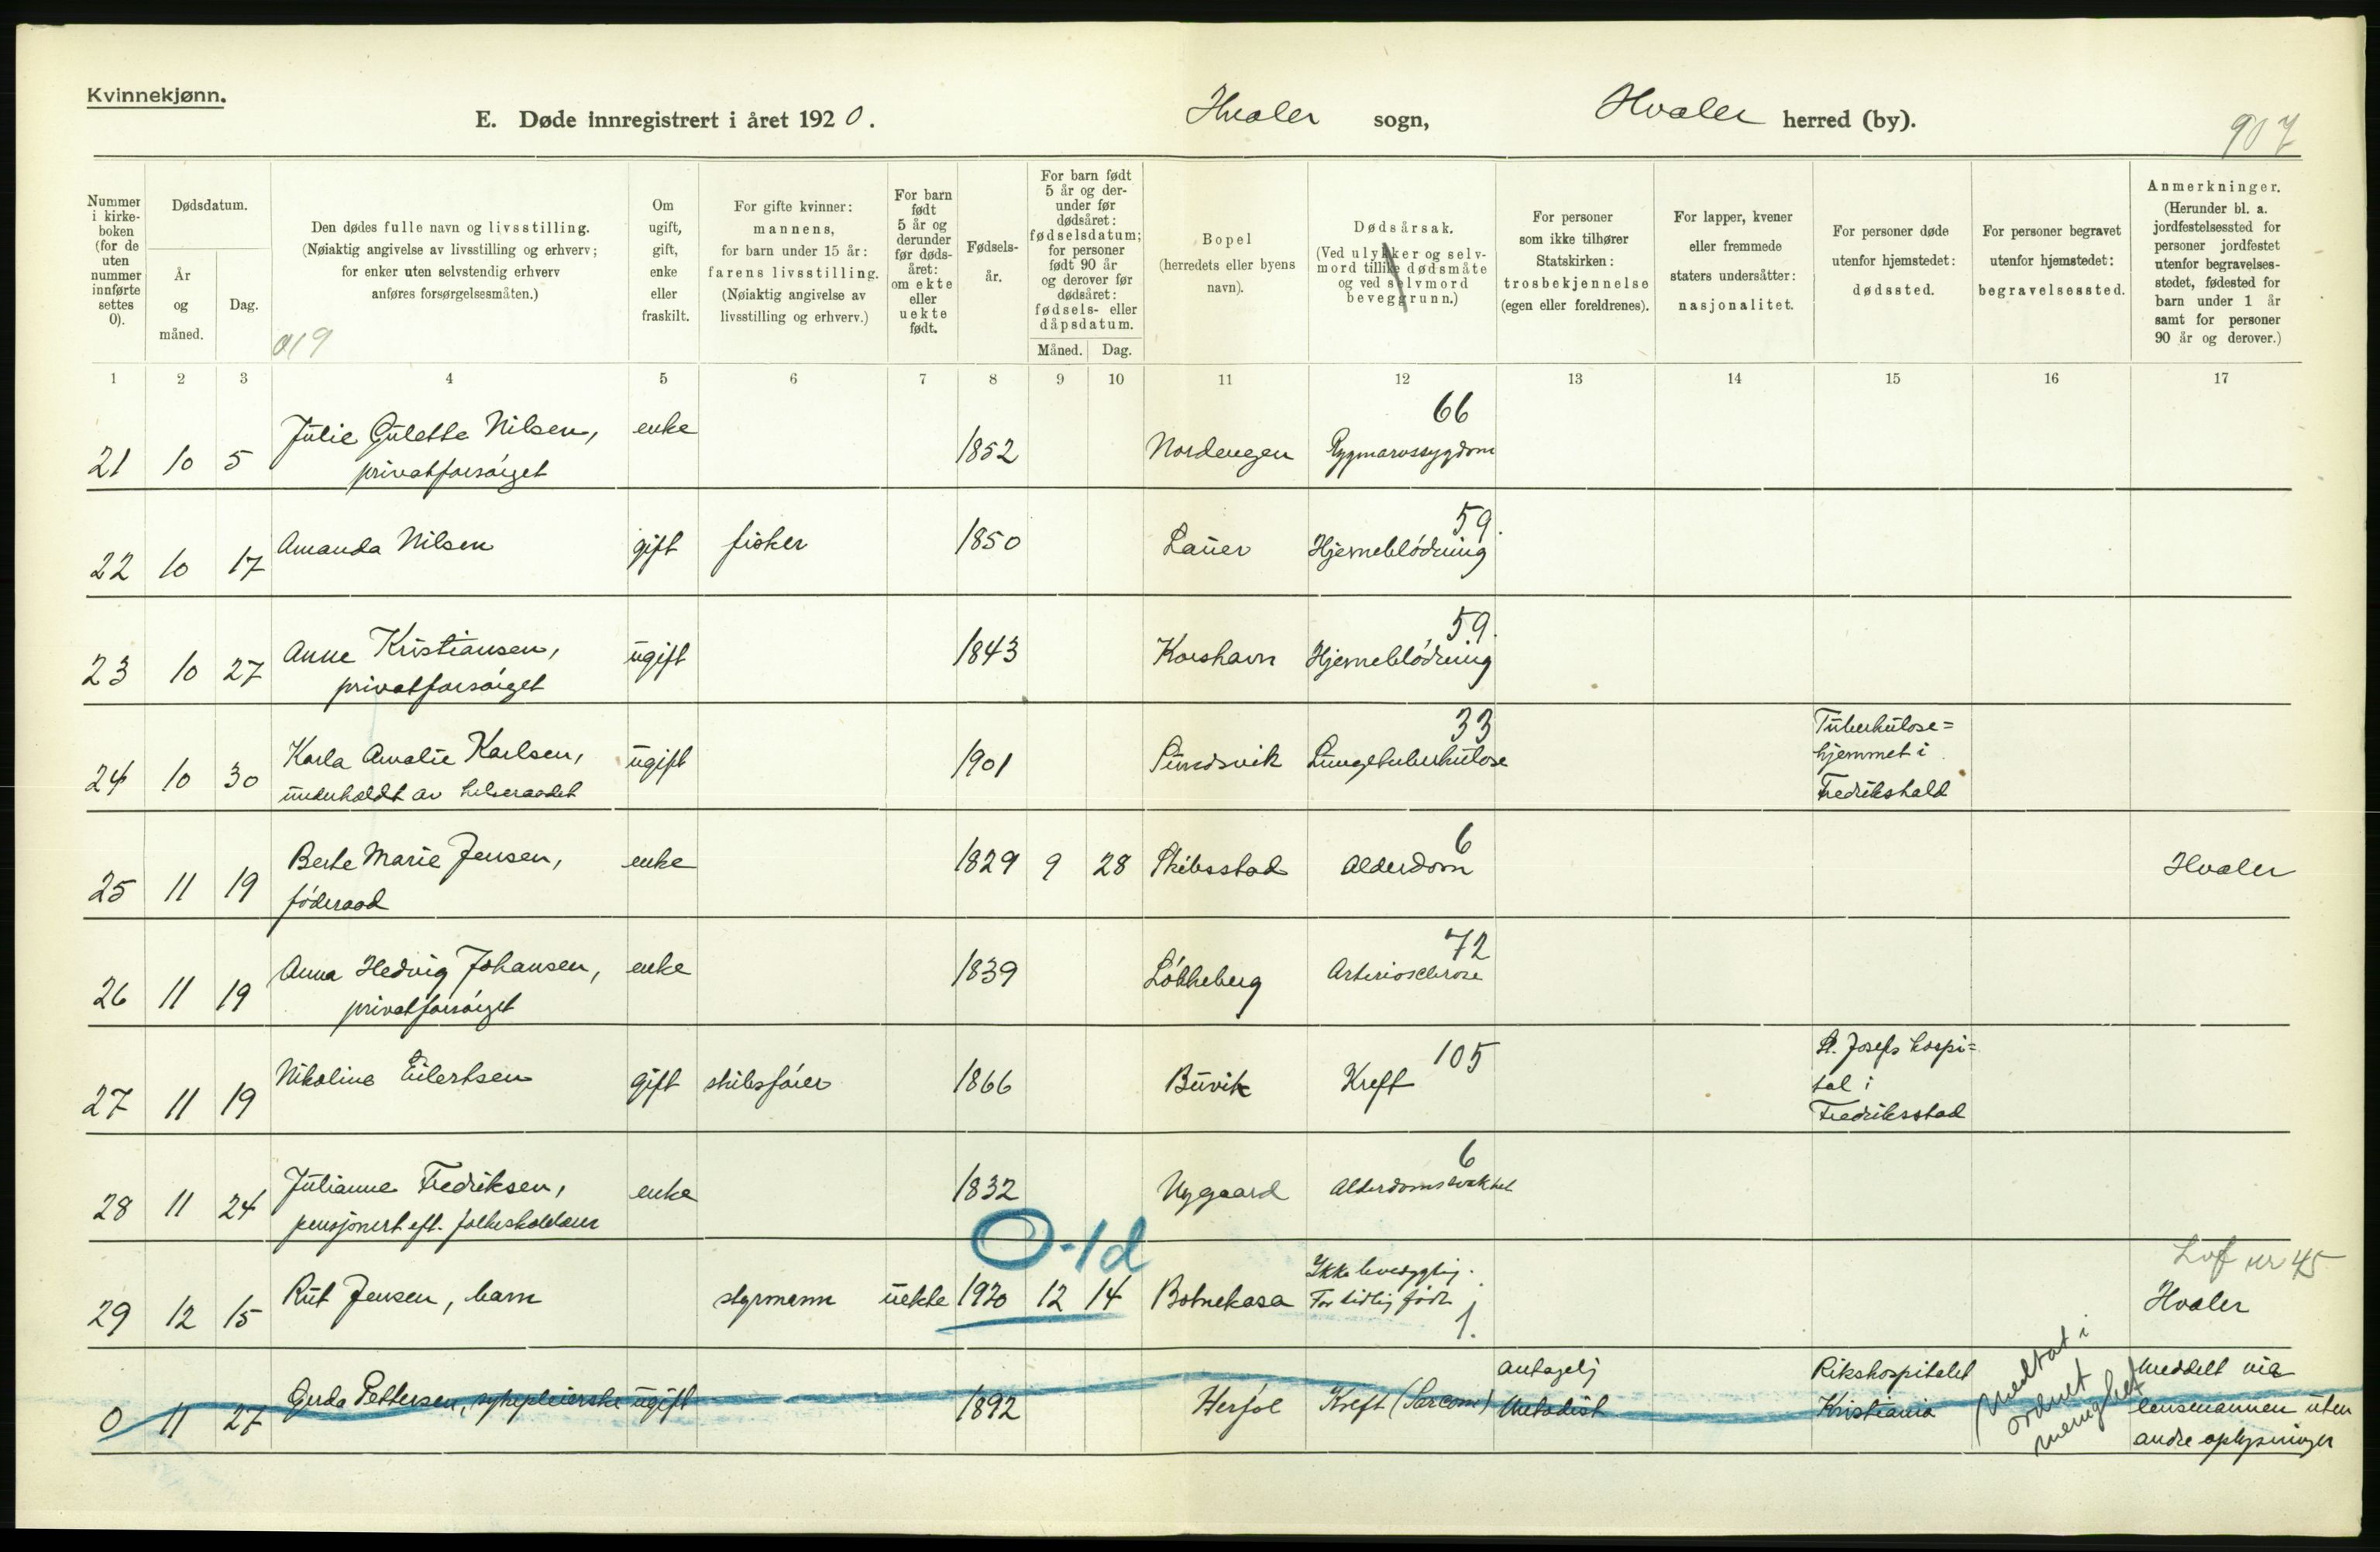 Kvinnekjønn.
E. Døde innregistrert i året 1920.
Hvaler sogn, Hvaler herred (by).
907
Nummer i kirkeboken (for de uten nummer innførte settes 0).
Dødsdatum.
År og måned.
Dag.
Den dødes fulle navn og livsstilling.
(Nøiaktig angivelse av livsstilling og erhverv;
for enker uten selvstendig erhverv
anføres forsørgelsesmåten.)
019
Om ugift, gift, enke eller fraskilt.
For gifte kvinner: mannens,
for barn under 15 år:
farens livsstilling.
(Nøiaktig angivelse av
livsstilling og erhverv.)
For barn født 5 år og derunder før dødsåret: om ekte eller uekte født.
Fødselsår.
For barn født 5 år og derunder før dødsåret: fødselsdatum; for personer født 90 år og derover før dødsåret: fødsels- eller dåpsdatum.
Måned. Dag.
Bopel
(herredets eller byens navn).
Dødsårsak.
(Ved ulykker og selvmord tillike dødsmåte og ved selvmord beveggrunn.)
For personer som ikke tilhører Statskirken: trosbekjennelse (egen eller foreldrenes).
For lapper, kvener eller fremmede staters undersåtter: nasjonalitet.
For personer døde utenfor hjemstedet: dødssted.
For personer begravet utenfor hjemstedet: begravelsessted.
Anmerkninger.
(Herunder bl. a. jordfestelsessted for personer jordfestet utenfor begravelsesstedet, fødested for barn under 1 år samt for personer 90 år og derover.)
1 2 3 4 5 6 7 8 9 10 11 12 13 14 15 16 17
66
21 10 5 Julie Gulette Nilsen, enke 1852 Nordengen Rygmarvssygdom
privatforsørget
59.
22 10 17 Amanda Nilsen gift fisker 1850 Lauer Hjerneblødning
59.
23 10 27 Anne Kristiansen, ugift 1843 Korshavn Hjerneblødning
privatforsørget
33
24 10 30 Karla Amalie Karlsen, ugift 1901 Sundsvik Lungetuberkulose Tuberkulose=
hjemmet i
underholdt av helseraadet Fredrikshald
6
25 11 19 Berte Marie Jensen, enke 1829 9 28 Skibsstad Alderdom Hvaler
føderaad
72
26 11 19 Anna Hedvig Johansen, enke 1839 Løkkeberg Arteriosclerose
privatforsørget
105
27 11 19 Nikoline Eilertsen gift skibsfører 1866 Buvik Kreft St. Josefs hospi=
tal i
Fredriksstad
6
28 11 24 Julianne Fredriksen, enke 1832 Nygaard Alderdomssvakhet
pensjonert eft. folkeskolelærer
0-1d
nr 45
29 12 15 Rut Jensen, barn styrmann uekte 1920 12 14 Botnekasa Ikke levedygtig.
For tidlig født Hvaler
1.
0 11 27 Gerda Pettersen, sykepleierske ugift 1892 Herføl Kreft (Sarcom) antagelig
Metodist Rikshospitalet
Kristiania
Medtat i
ordnet
menighet
Meddelt via
lensmannen uten
andre oplysninger